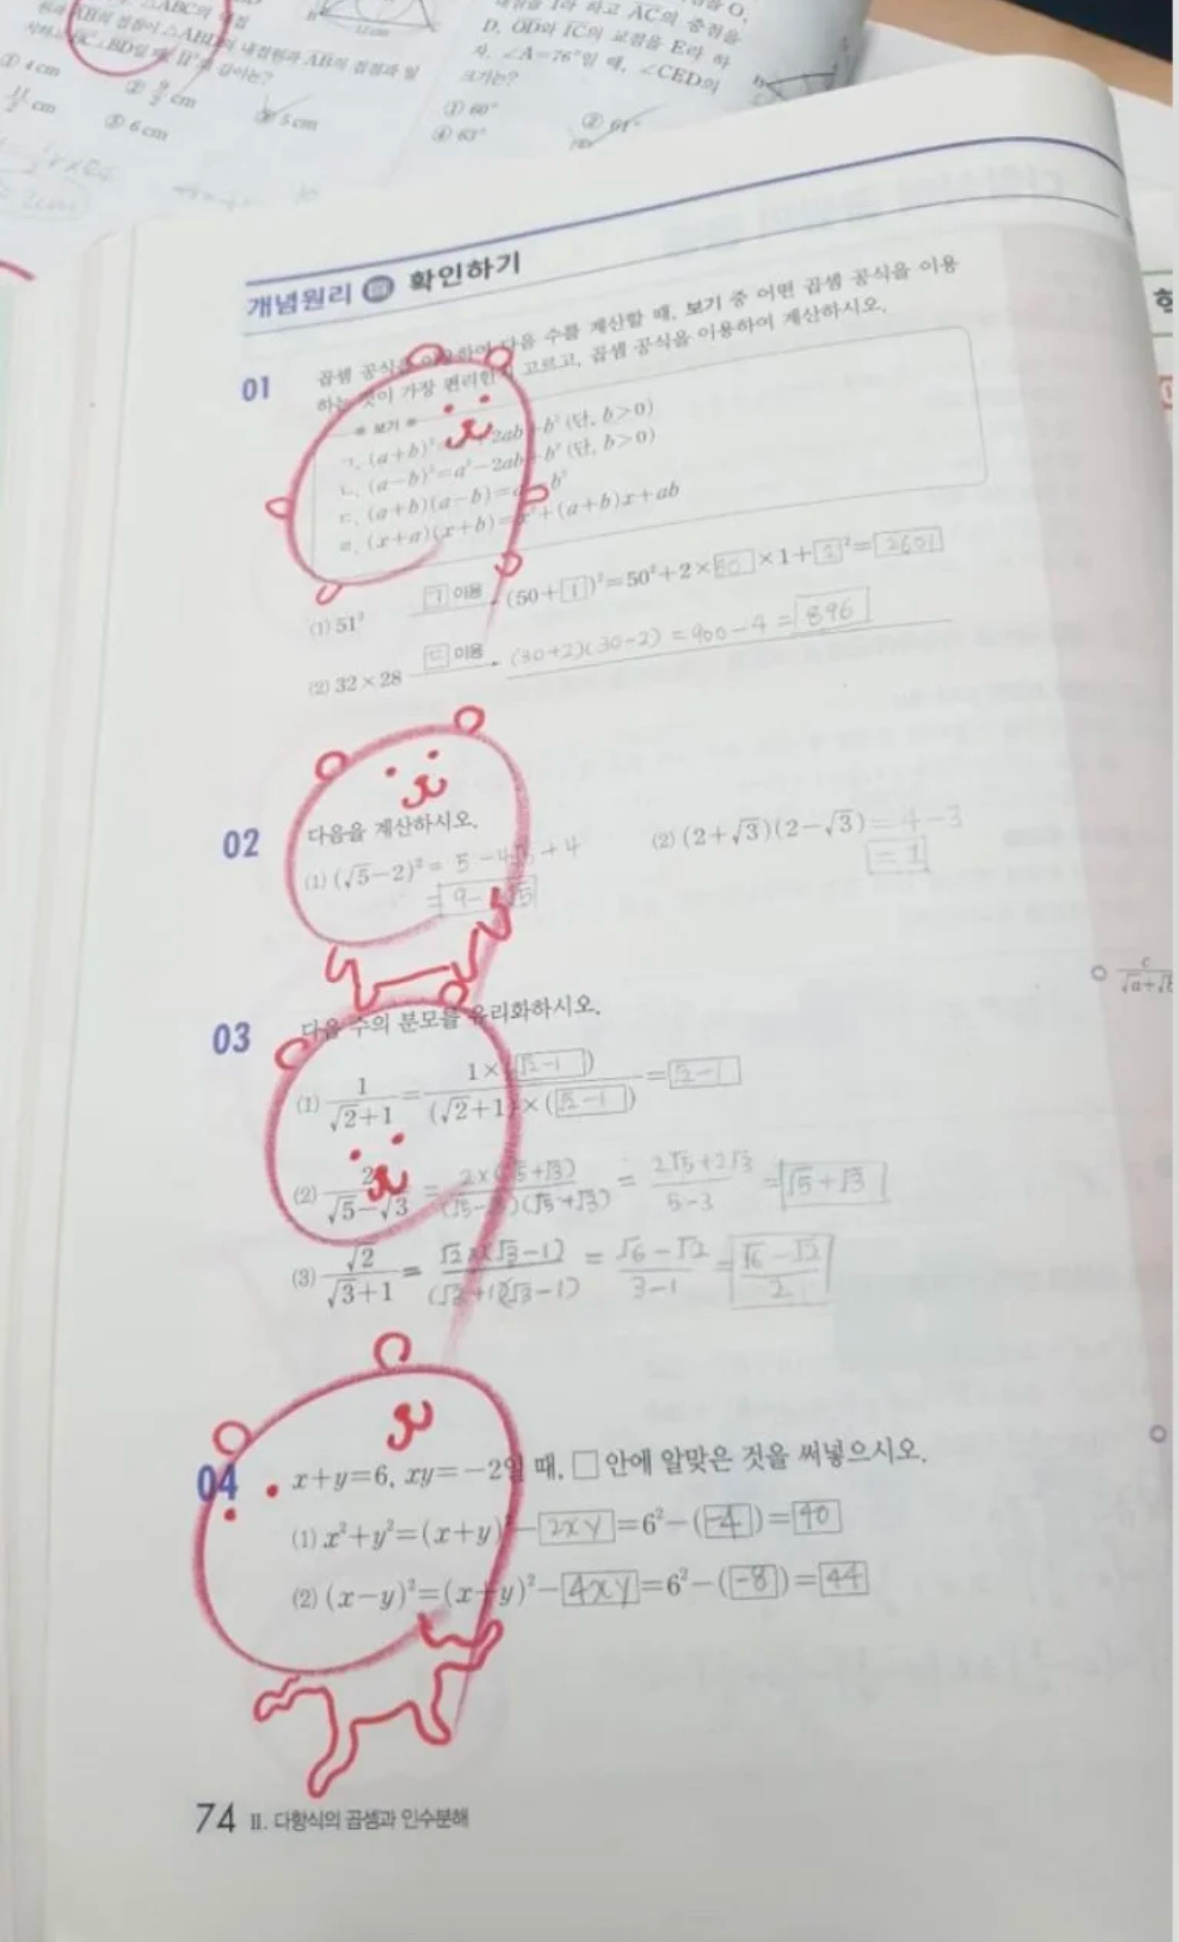 △ABC의
원과 AB의 접점이 △ABD의 내접원과 AB의 접점과 일
길이는?
① 4 cm
② 9/2 cm
③ 5 cm
11/2 cm
⑤ 6 cm
12 cm
I라 하고 AC의 중점을
D, OD와 IC의 교점을 E라 하
자. ∠A=76°일 때, ∠CED의
크기는?
① 60°
② 61°
④ 63°
= 2cm
개념원리 확인하기
01 곱셈 공식을 이용하여 다음 수를 계산할 때, 보기 중 어떤 곱셈 공식을 이용
하는 것이 가장 편리한지 고르고, 곱셈 공식을 이용하여 계산하시오.
보기
ㄱ. (a+b)²= 2ab+b² (단, b>0)
ㄴ. (a−b)²=a²−2ab+b² (단, b>0)
ㄷ. (a+b)(a−b)=a²−b²
ㄹ. (x+a)(x+b)=x²+(a+b)x+ab
(1) 51² ㄱ 이용 (50+1)²=50²+2×50×1+1²=2601
(2) 32×28 ㄷ 이용 (30+2)(30-2) = 900-4 = 896
02 다음을 계산하시오.
(1) (√5−2)² = 5-4√5+4
= 9-4√5
(2) (2+√3)(2−√3) = 4-3
= 1
03 다음 수의 분모를 유리화하시오.
(1) 1/(√2+1) = 1×(√2-1)/((√2+1)×(√2-1)) = √2-1
(2) 2/(√5−√3) = 2×(√5+√3)/((√5-√3)(√5+√3)) = (2√5+2√3)/(5-3) = √5+√3
(3) √2/(√3+1) = √2×(√3-1)/((√3+1)(√3-1)) = (√6-√2)/(3-1) = (√6-√2)/2
04 x+y=6, xy=−2일 때, □ 안에 알맞은 것을 써넣으시오.
(1) x²+y²=(x+y)²−2xy=6²−(-4)=40
(2) (x−y)²=(x+y)²−4xy=6²−(-8)=44
74 Ⅱ. 다항식의 곱셈과 인수분해